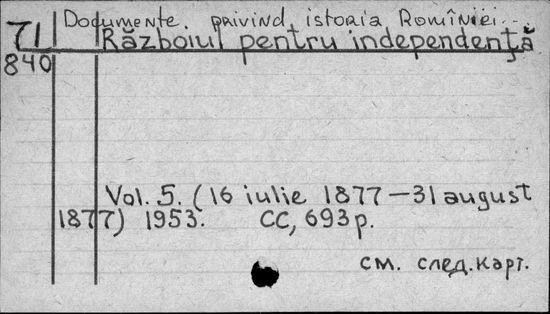 Documente privind istoria Romîniei...
71 Războiul pentru independenţă
840
Vol. 5. (16 iulie 1877 – 31 august
1877) 1953. CC, 693 p.
см. след. карт.